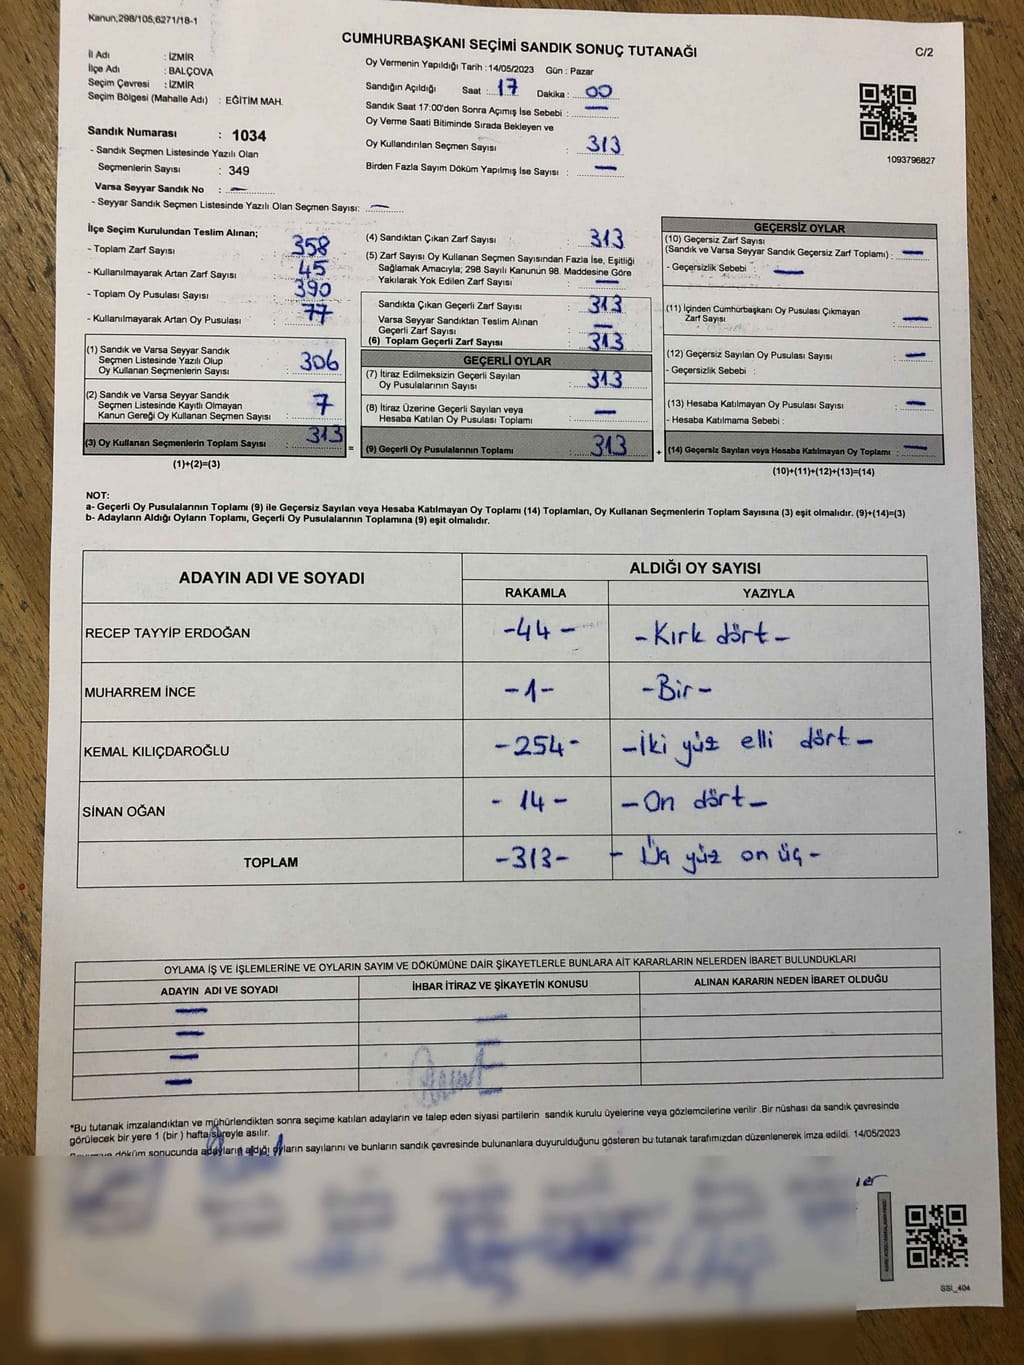 Kanun,298/105;6271/18-1
CUMHURBAŞKANI SEÇİMİ SANDIK SONUÇ TUTANAĞI
C/2
İl Adı : İZMİR
İlçe Adı : BALÇOVA
Seçim Çevresi : İZMİR
Seçim Bölgesi (Mahalle Adı) : EĞİTİM MAH.
Sandık Numarası : 1034
- Sandık Seçmen Listesinde Yazılı Olan
Seçmenlerin Sayısı : 349
Varsa Seyyar Sandık No : —
- Seyyar Sandık Seçmen Listesinde Yazılı Olan Seçmen Sayısı: —
Oy Vermenin Yapıldığı Tarih : 14/05/2023 Gün : Pazar
Sandığın Açıldığı Saat : 17 Dakika : 00
Sandık Saat 17:00'den Sonra Açımış İse Sebebi : —
Oy Verme Saati Bitiminde Sırada Bekleyen ve
Oy Kullandırılan Seçmen Sayısı : 313
Birden Fazla Sayım Döküm Yapılmış İse Sayısı : —
1093796827
İlçe Seçim Kurulundan Teslim Alınan;
- Toplam Zarf Sayısı : 358
- Kullanılmayarak Artan Zarf Sayısı : 45
- Toplam Oy Pusulası Sayısı : 390
- Kullanılmayarak Artan Oy Pusulası : 77
(1) Sandık ve Varsa Seyyar Sandık
Seçmen Listesinde Yazılı Olup
Oy Kullanan Seçmenlerin Sayısı : 306
(2) Sandık ve Varsa Seyyar Sandık
Seçmen Listesinde Kayıtlı Olmayan
Kanun Gereği Oy Kullanan Seçmen Sayısı : 7
(3) Oy Kullanan Seçmenlerin Toplam Sayısı : 313
(1)+(2)=(3)
=
(4) Sandıktan Çıkan Zarf Sayısı : 313
(5) Zarf Sayısı Oy Kullanan Seçmen Sayısından Fazla İse, Eşitliği
Sağlamak Amacıyla; 298 Sayılı Kanunün 98. Maddesine Göre
Yakılarak Yok Edilen Zarf Sayısı : —
Sandıkta Çıkan Geçerli Zarf Sayısı : 313
Varsa Seyyar Sandıktan Teslim Alınan
Geçerli Zarf Sayısı : —
(6) Toplam Geçerli Zarf Sayısı : 313
GEÇERLİ OYLAR
(7) İtiraz Edilmeksizin Geçerli Sayılan
Oy Pusulalarının Sayısı : 313
(8) İtiraz Üzerine Geçerli Sayılan veya
Hesaba Katılan Oy Pusulası Toplamı : —
(9) Geçerli Oy Pusulalarının Toplamı : 313
+
GEÇERSİZ OYLAR
(10) Geçersiz Zarf Sayısı
(Sandık ve Varsa Seyyar Sandık Geçersiz Zarf Toplamı) : —
- Geçersizlik Sebebi : —
(11) İçinden Cumhurbaşkanı Oy Pusulası Çıkmayan
Zarf Sayısı : —
(12) Geçersiz Sayılan Oy Pusulası Sayısı : —
- Geçersizlik Sebebi :
(13) Hesaba Katılmayan Oy Pusulası Sayısı : —
- Hesaba Katılmama Sebebi :
(14) Geçersiz Sayılan veya Hesaba Katılmayan Oy Toplamı : —
(10)+(11)+(12)+(13)=(14)
NOT:
a- Geçerli Oy Pusulalarının Toplamı (9) ile Geçersiz Sayılan veya Hesaba Katılmayan Oy Toplamı (14) Toplamları, Oy Kullanan Seçmenlerin Toplam Sayısına (3) eşit olmalıdır. (9)+(14)=(3)
b- Adayların Aldığı Oyların Toplamı, Geçerli Oy Pusulalarının Toplamına (9) eşit olmalıdır.
ADAYIN ADI VE SOYADI
ALDIĞI OY SAYISI
RAKAMLA YAZIYLA
RECEP TAYYİP ERDOĞAN -44- -Kırk dört-
MUHARREM İNCE -1- -Bir-
KEMAL KILIÇDAROĞLU -254- -İki yüz elli dört-
SİNAN OĞAN -14- -On dört-
TOPLAM -313- - Üç yüz on üç-
OYLAMA İŞ VE İŞLEMLERİNE VE OYLARIN SAYIM VE DÖKÜMÜNE DAİR ŞİKAYETLERLE BUNLARA AİT KARARLARIN NELERDEN İBARET BULUNDUKLARI
ADAYIN ADI VE SOYADI İHBAR İTİRAZ VE ŞİKAYETİN KONUSU ALINAN KARARIN NEDEN İBARET OLDUĞU
*Bu tutanak imzalandıktan ve mühürlendikten sonra seçime katılan adayların ve talep eden siyasi partilerin sandık kurulu üyelerine veya gözlemcilerine verilir .Bir nüshası da sandık çevresinde
görülecek bir yere 1 (bir ) hafta süreyle asılır.
döküm sonucunda adayların aldığı oyların sayılarını ve bunların sandık çevresinde bulunanlara duyurulduğunu gösteren bu tutanak tarafımızdan düzenlenerek imza edildi. 14/05/2023
SSI_404